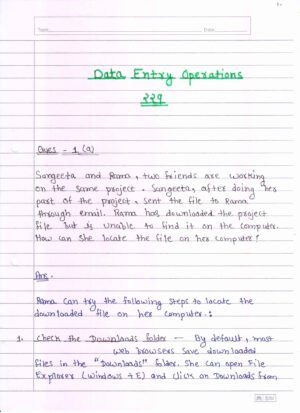 Data Entry Operations
229
Ques - 1 (a)
Sangeeta and Rama, two friends are working
on the same project. Sangeeta, after doing her
part of the project, sent the file to Rama
through email. Rama has downloaded the project
file but is unable to find it on the computer.
How can she locate the file on her computer?
Ans.
Rama can try the following steps to locate the
downloaded file on her computer.:
1. Check the Downloads folder — By default, most
web browsers save downloaded
files in the "Downloads" folder. She can open File
Explorer (Windows + E) and click on Downloads from